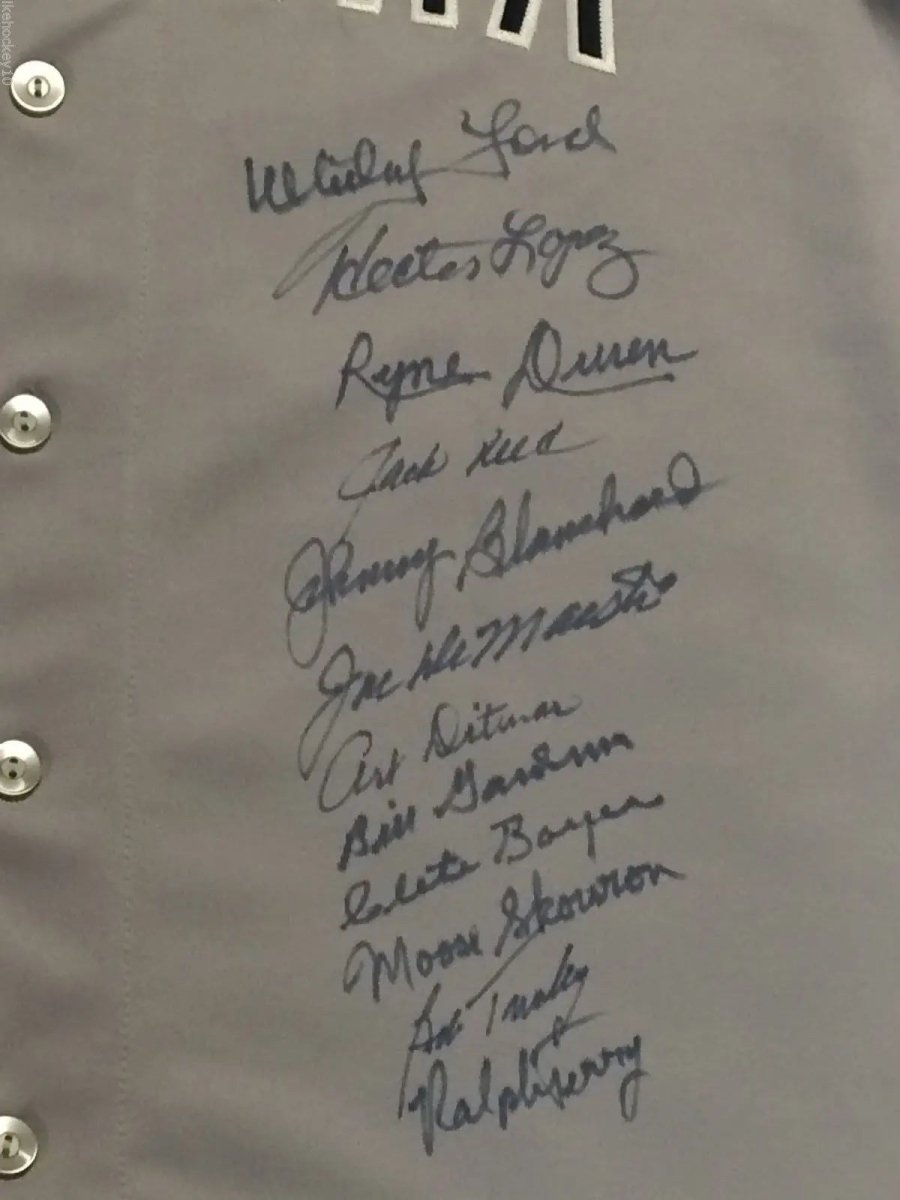 Whitey Ford
Hector Lopez
Ryne Duren
Jack Reed
Johnny Blanchard
Joe DeMaestri
Art Ditmar
Bill Gardner
Clete Boyer
Moose Skowron
Bob Turley
Ralph Terry